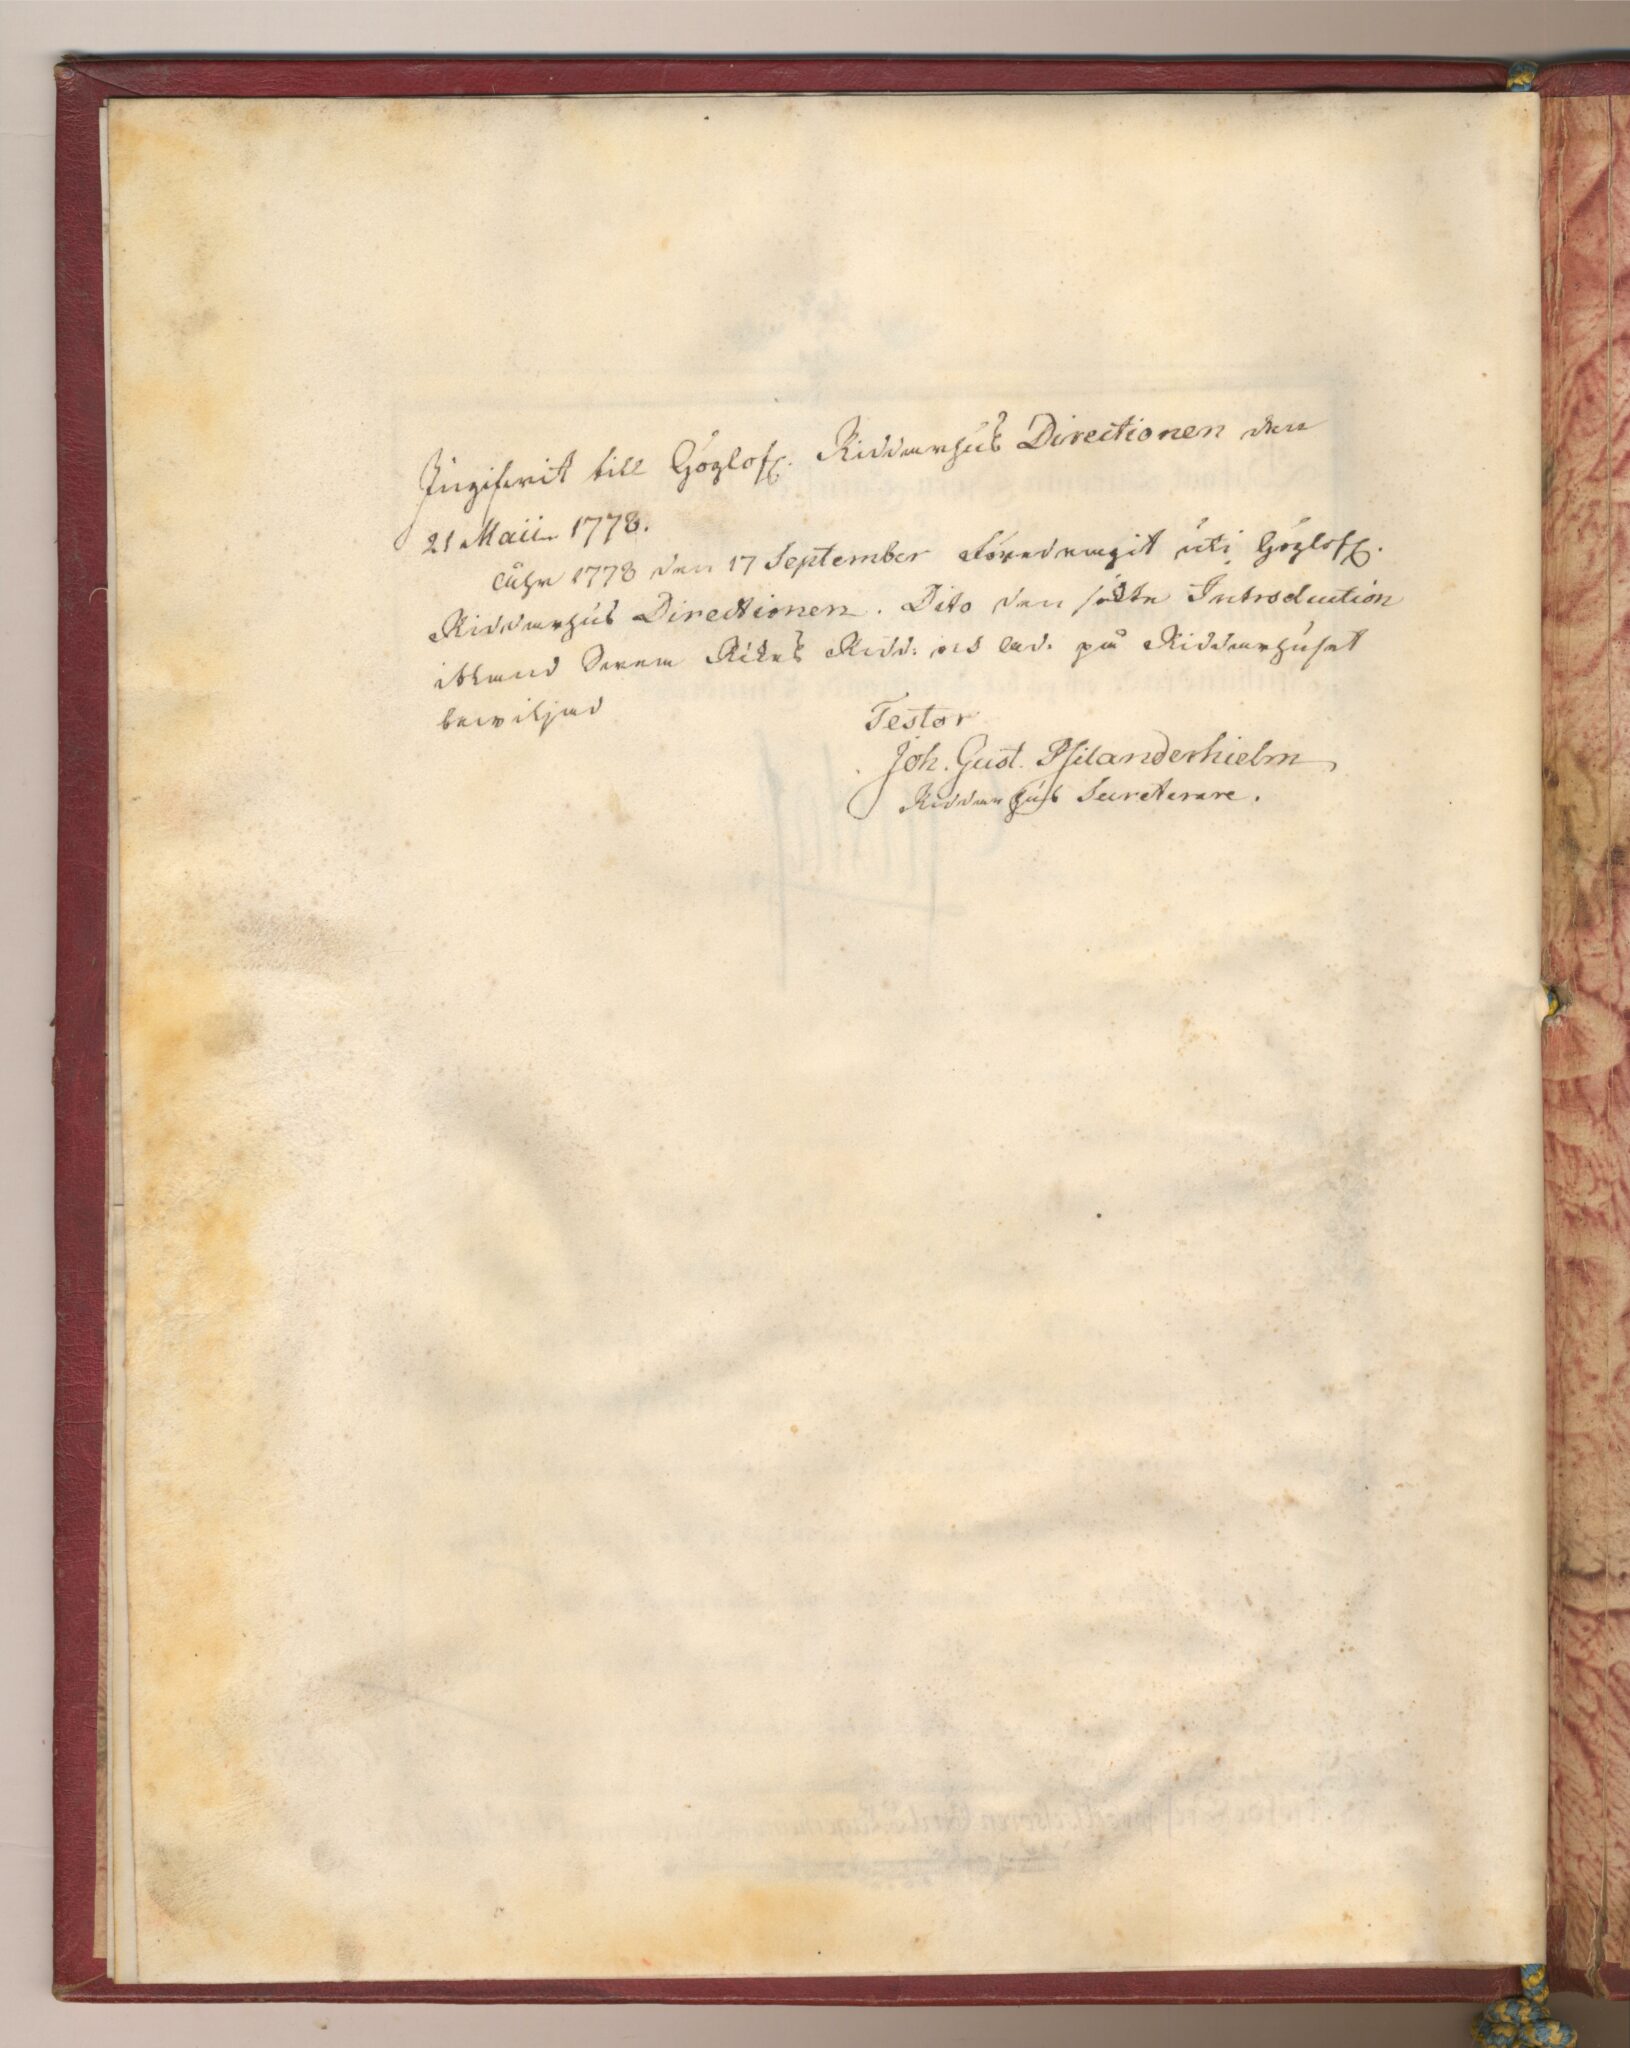 Ingifwit till Höglofl. Riddarhus Directionen den
21 Maii 1778.
Åhr 1778 den 17 September Föredragit uti Höglofl.
Riddarhus Directionen. Dito den sökte Introduction
ibland Swea Rikes Ridd: och Ad. på Riddarhuset
bewiljad
Testor
Joh. Gust. Psilanderhielm
Riddarhus Secreterare.